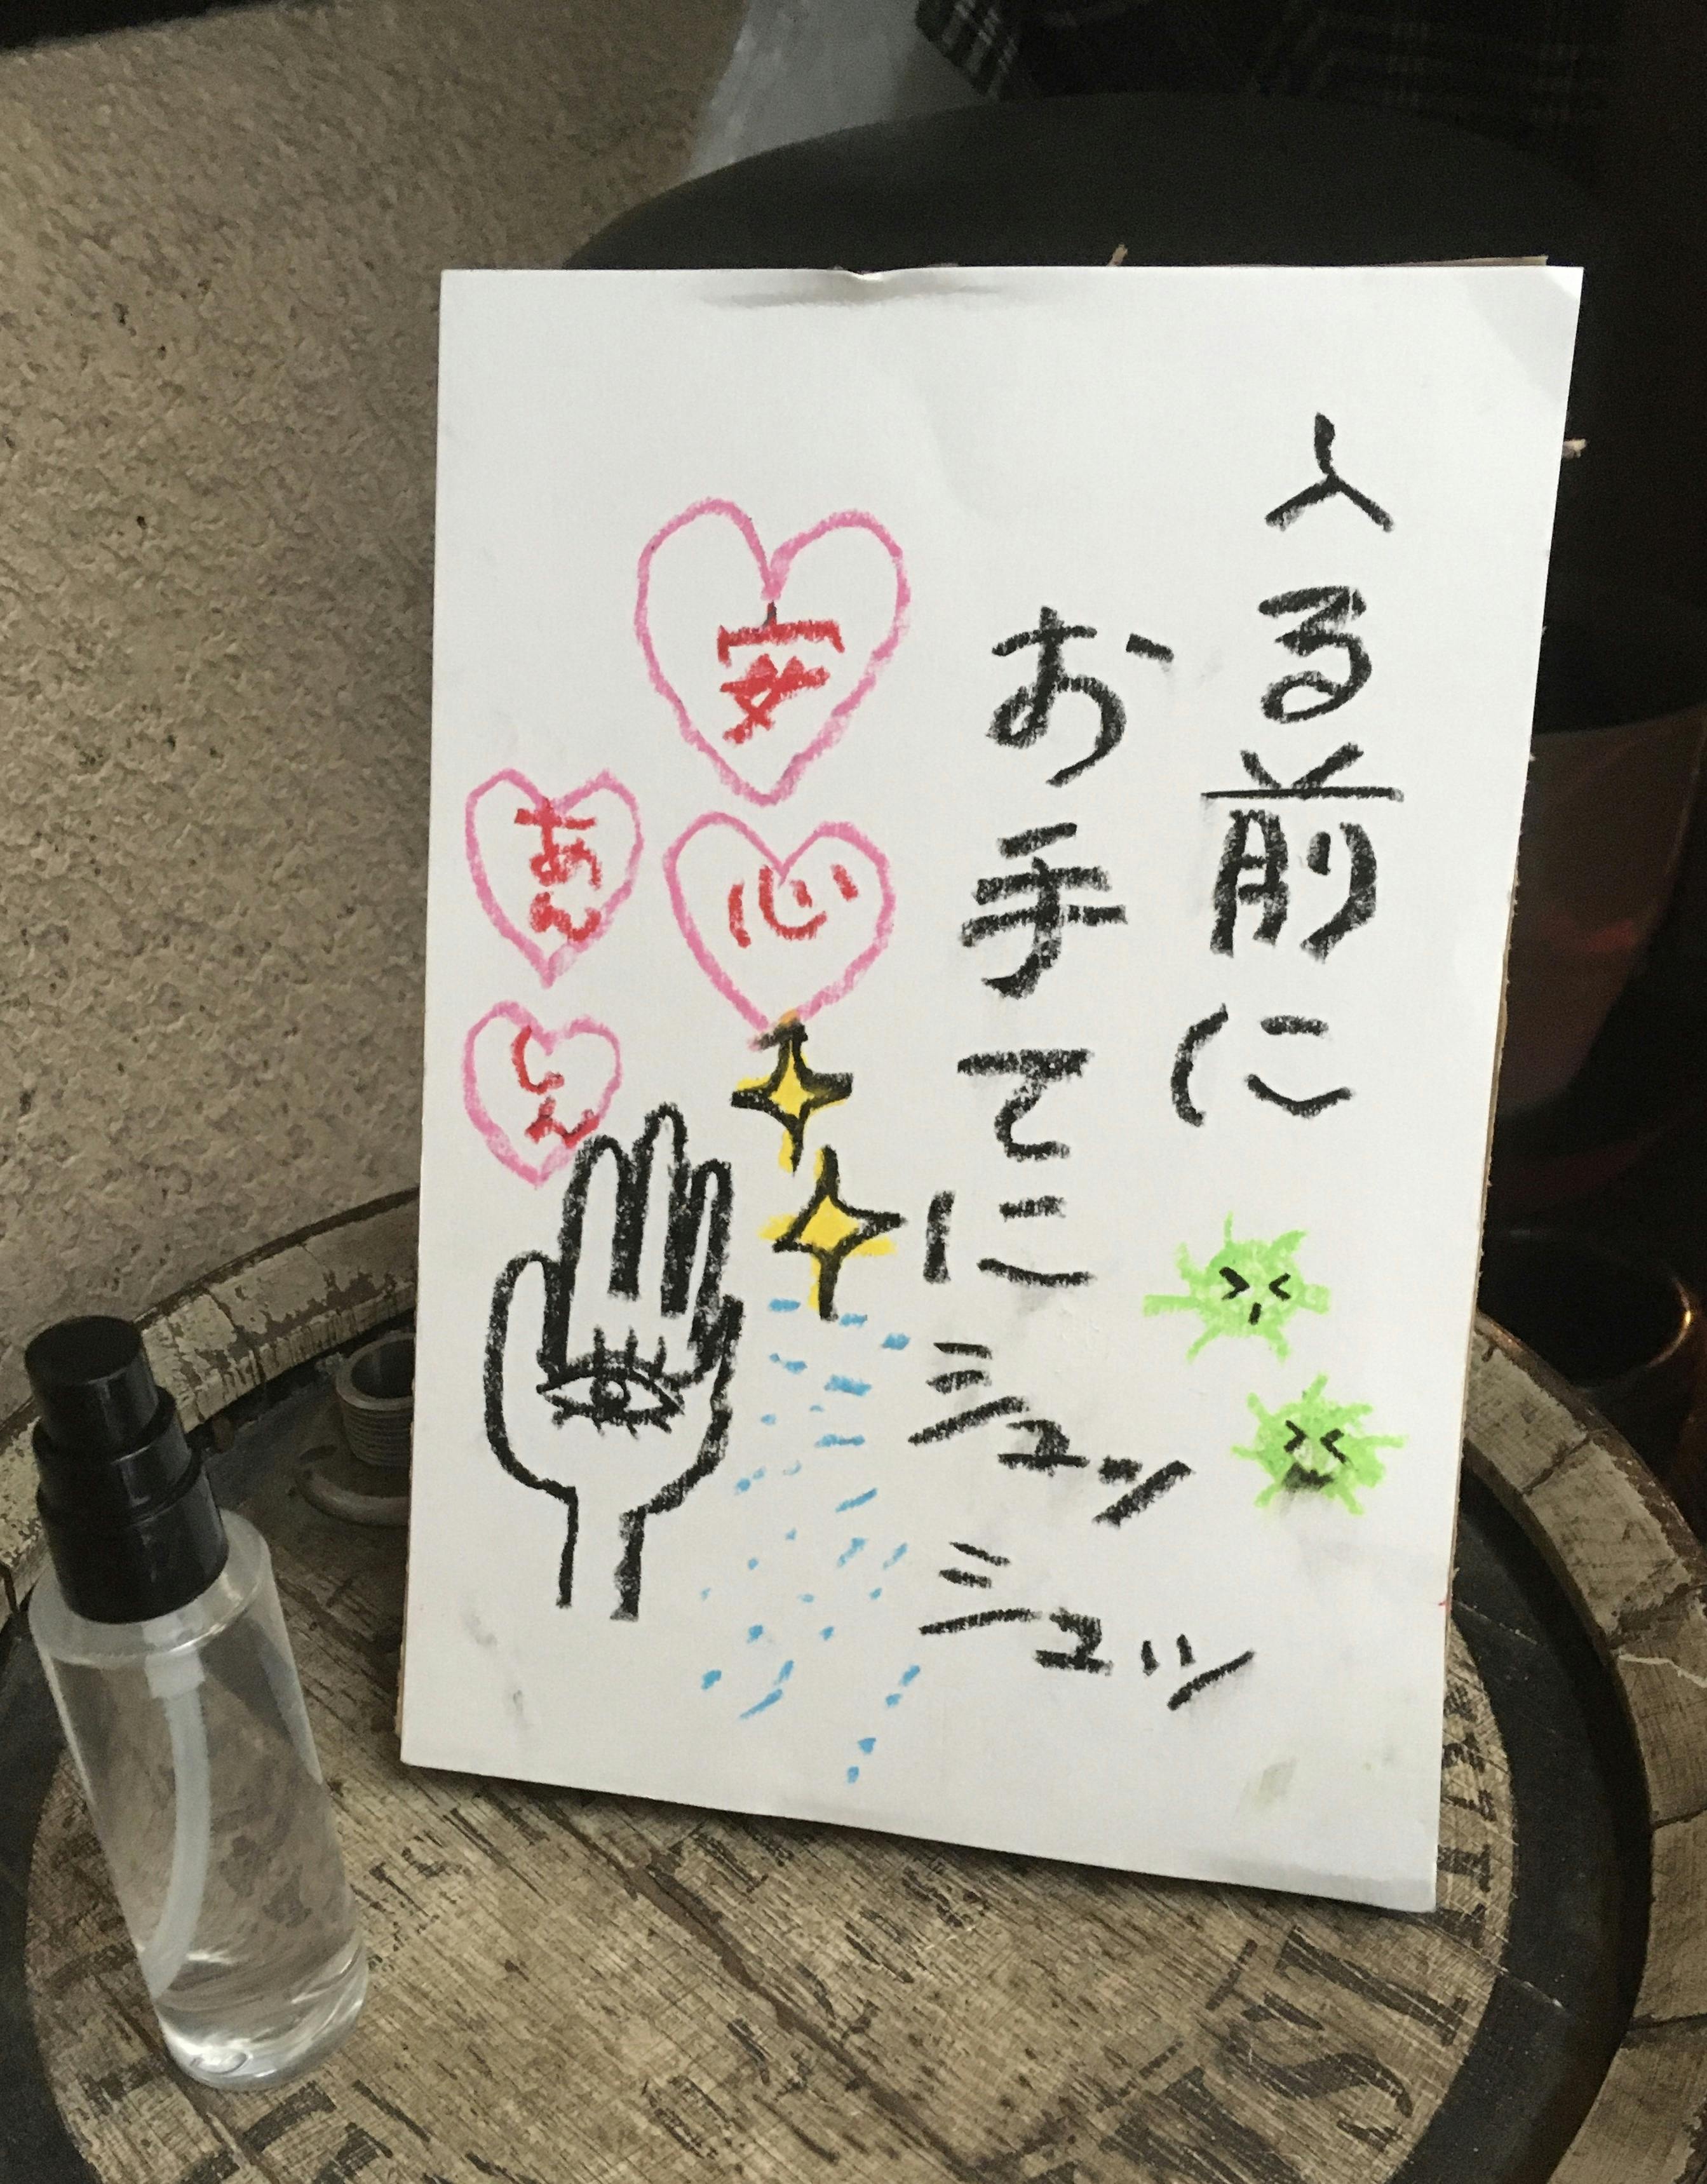 入る前に
お手てに
シュッ
シュッ
安
心
あん
しん